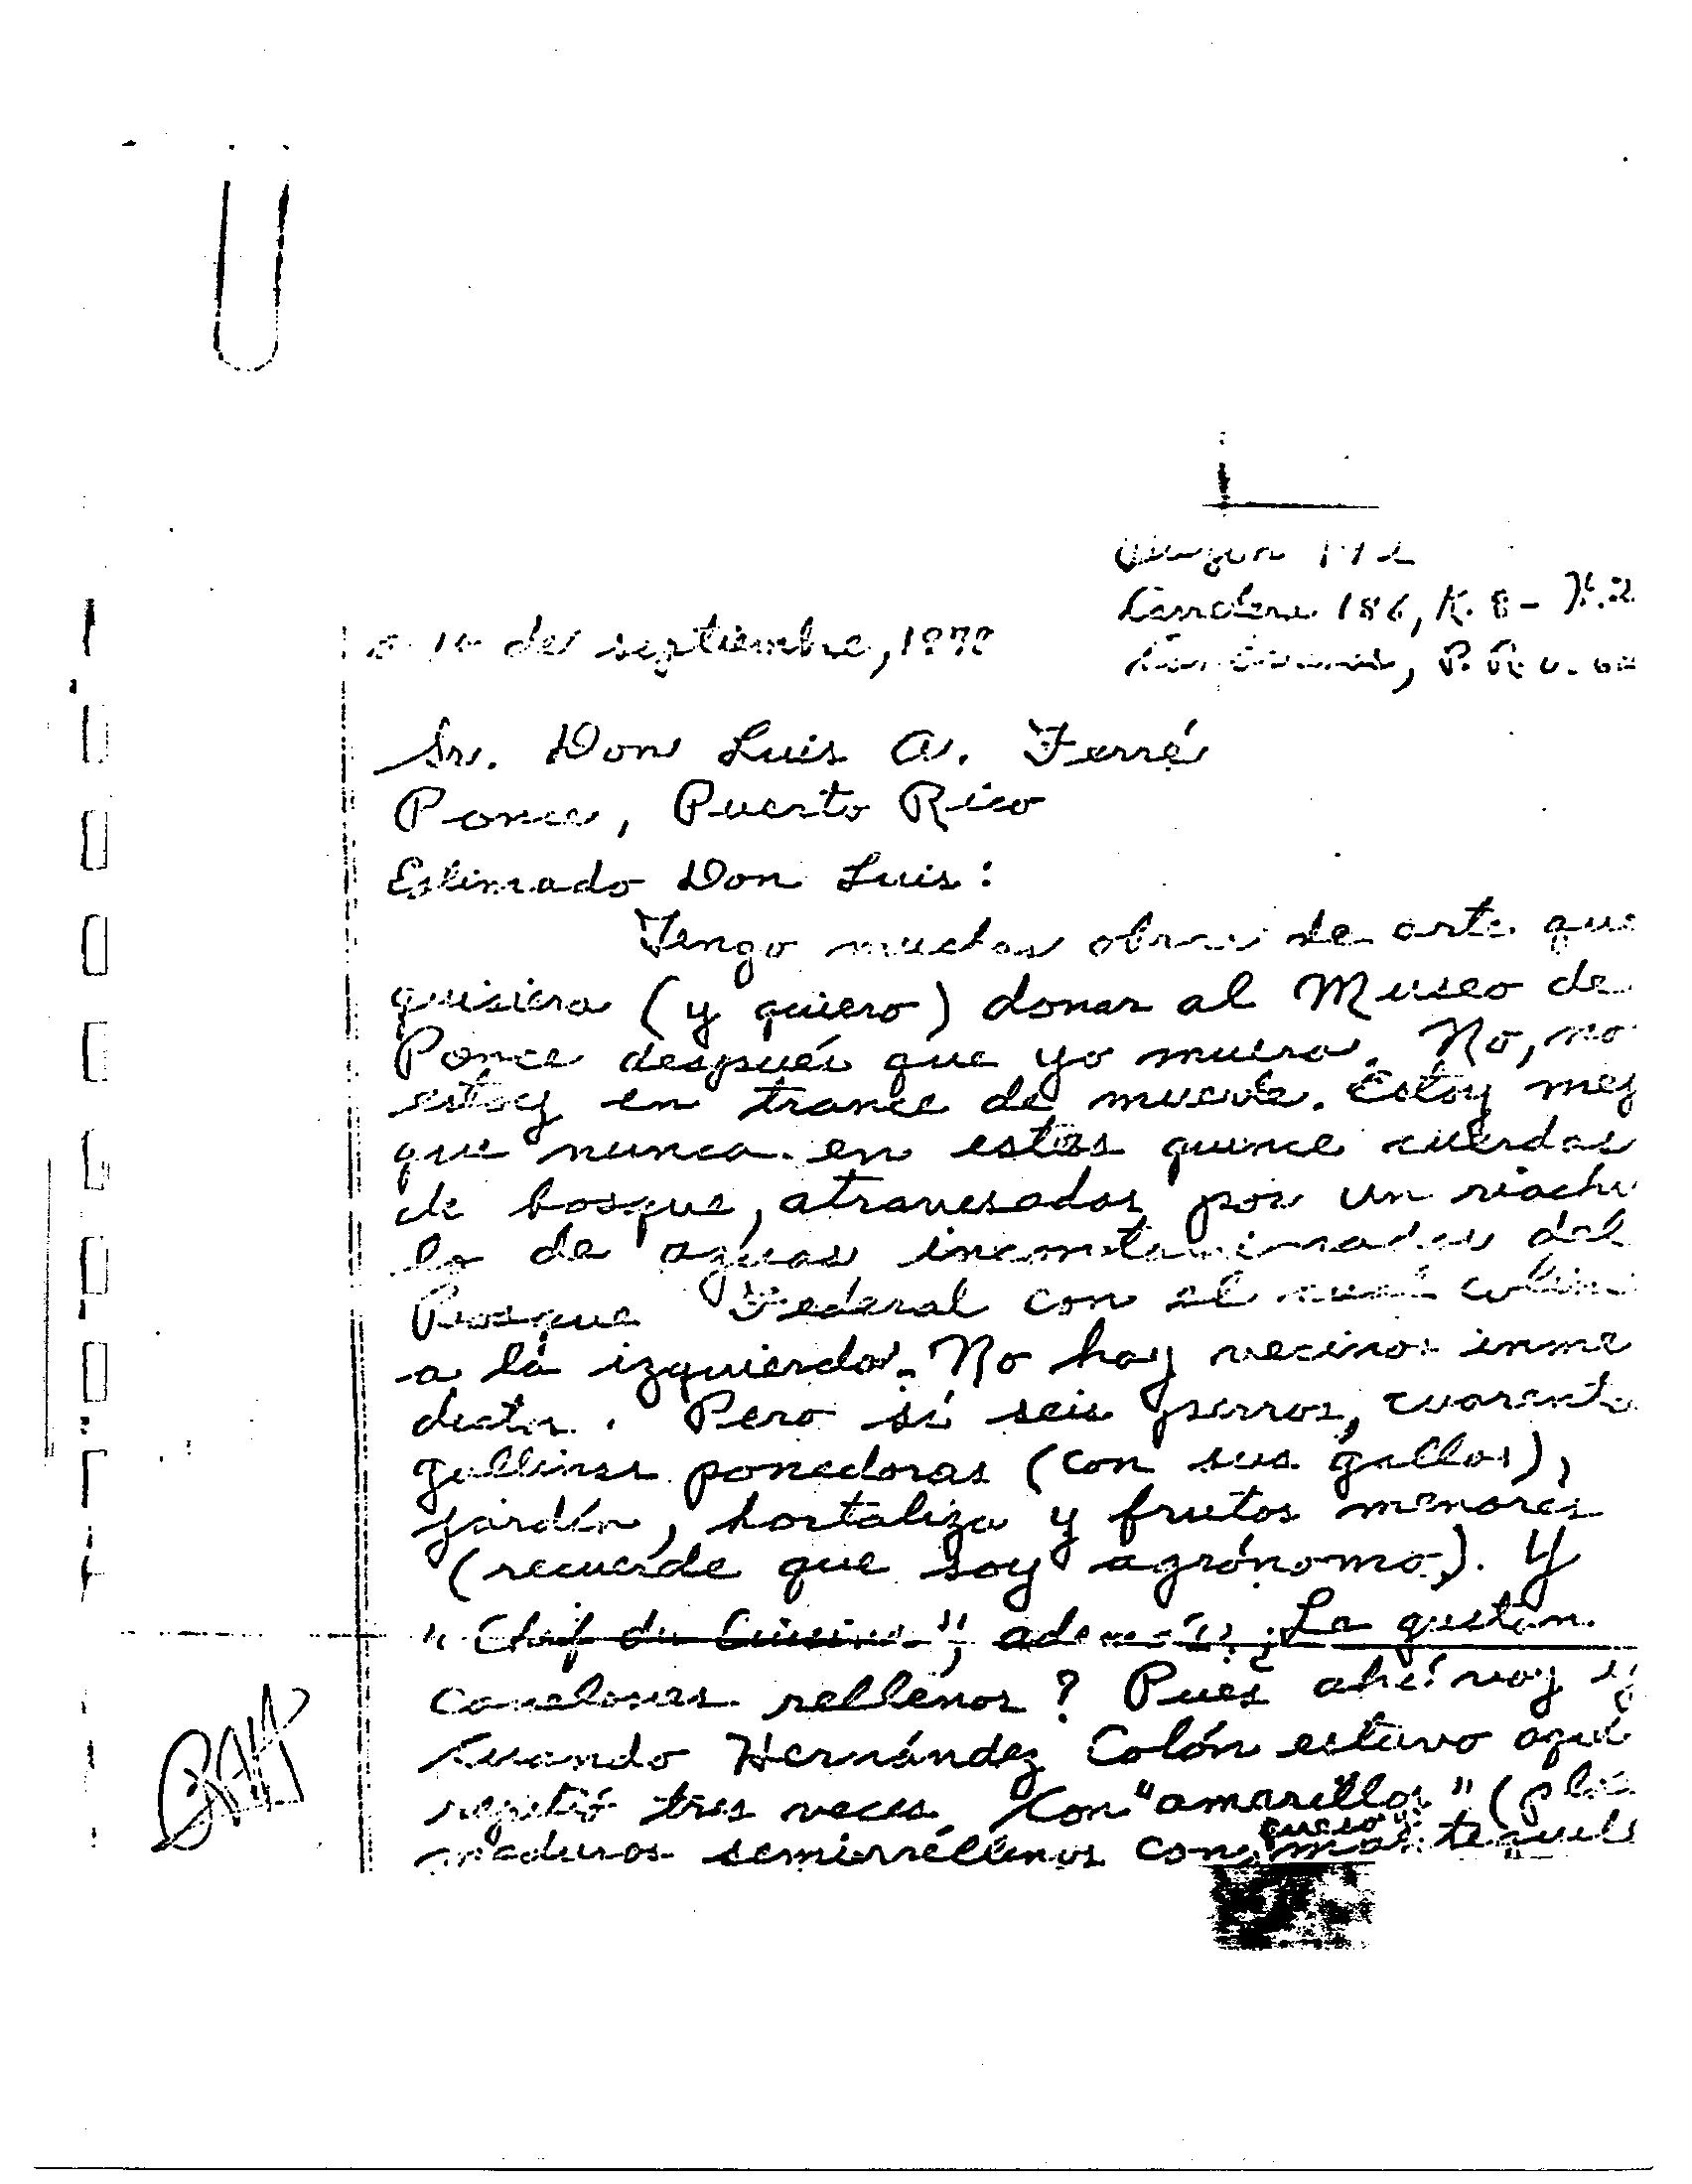 Carretera 186, K. 8 - H.2
de septiembre, 1978
P. R.
Sr. Don Luis A. Ferré
Ponce, Puerto Rico
Estimado Don Luis:
Tengo muchas obras de arte que
quisiera (y quiero) donar al Museo de
Ponce después que yo muera. No, no
estoy en trance de muerte. Estoy mej
que nunca en estas quince cuerdas
de bosque, atravesadas por un riachu
lo de aguas incontaminadas del
Bosque Federal con el cual colin
a la izquierda. No hay vecinos inme
diatos. Pero sí seis perros, cuarenta
gallinas ponedoras (con sus gallos),
jardín, hortaliza y frutos menores
(recuerde que soy agrónomo). Y
"Chef du Cuisine", además ¿Le gustan
canelones rellenos? Pues ahí voy yo
Cuando Hernández Colón estuvo aquí
repitió tres veces. Con "amarillos" (plá
maduros semirrellenos con queso mantequill